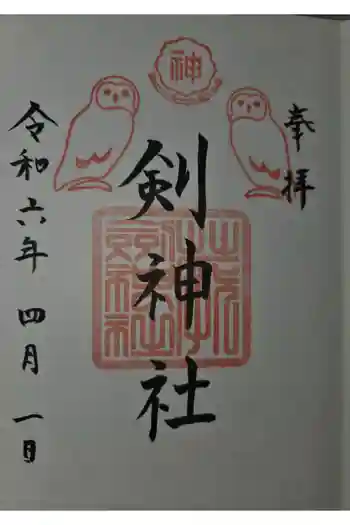 奉拝
神
剣神社
令和六年 四月 一日